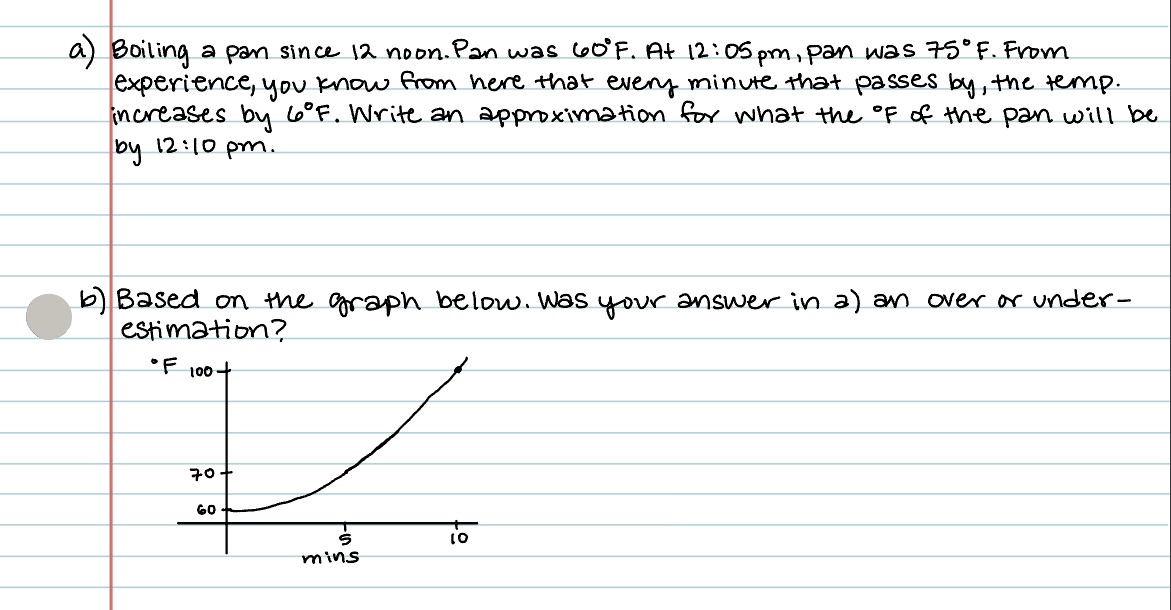 a) Boiling a pan since 12 noon. Pan was 60°F. At 12:05pm, pan was 75°F. From
experience, you know from here that every minute that passes by, the temp.
increases by 6°F. Write an approximation for what the °F of the pan will be
by 12:10 pm.
b) Based on the graph below. Was your answer in a) an over or under-
estimation?
°F 100
70
60
5 10
mins